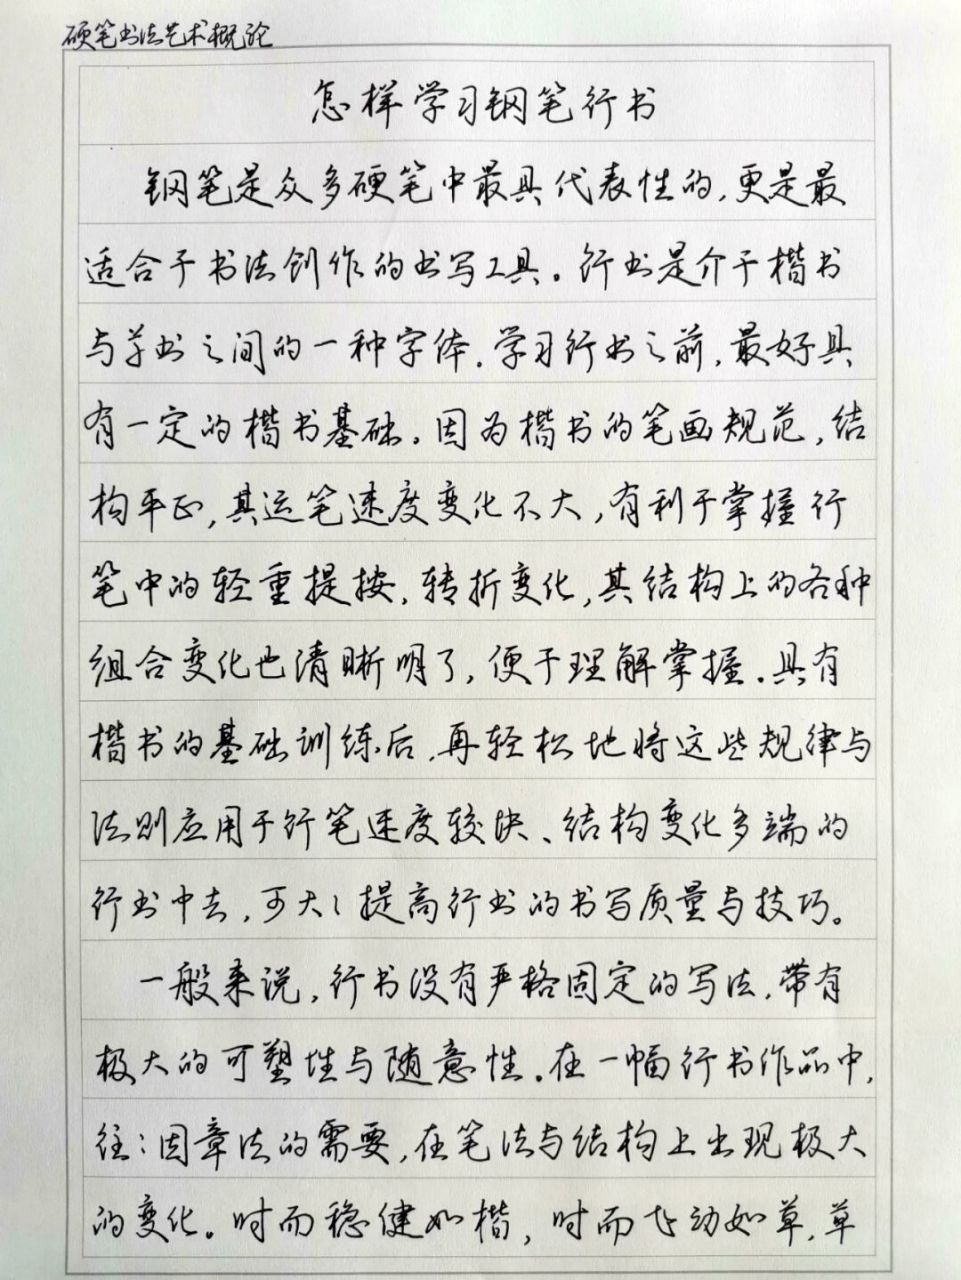 硬笔书法艺术概论
怎样学习钢笔行书
钢笔是众多硬笔中最具代表性的,更是最
适合于书法创作的书写工具。行书是介于楷书
与草书之间的一种字体.学习行书之前,最好具
有一定的楷书基础。因为楷书的笔画规范,结
构平正,其运笔速度变化不大,有利于掌握行
笔中的轻重提按,转折变化,其结构上的各种
组合变化也清晰明了,便于理解掌握.具有
楷书的基础训练后,再轻松地将这些规律与
法则应用于行笔速度较快、结构变化多端的
行书中去,可大々提高行书的书写质量与技巧。
一般来说,行书没有严格固定的写法,带有
极大的可塑性与随意性.在一幅行书作品中,
往:因章法的需要,在笔法与结构上出现极大
的变化。时而稳健如楷,时而飞动如草,草